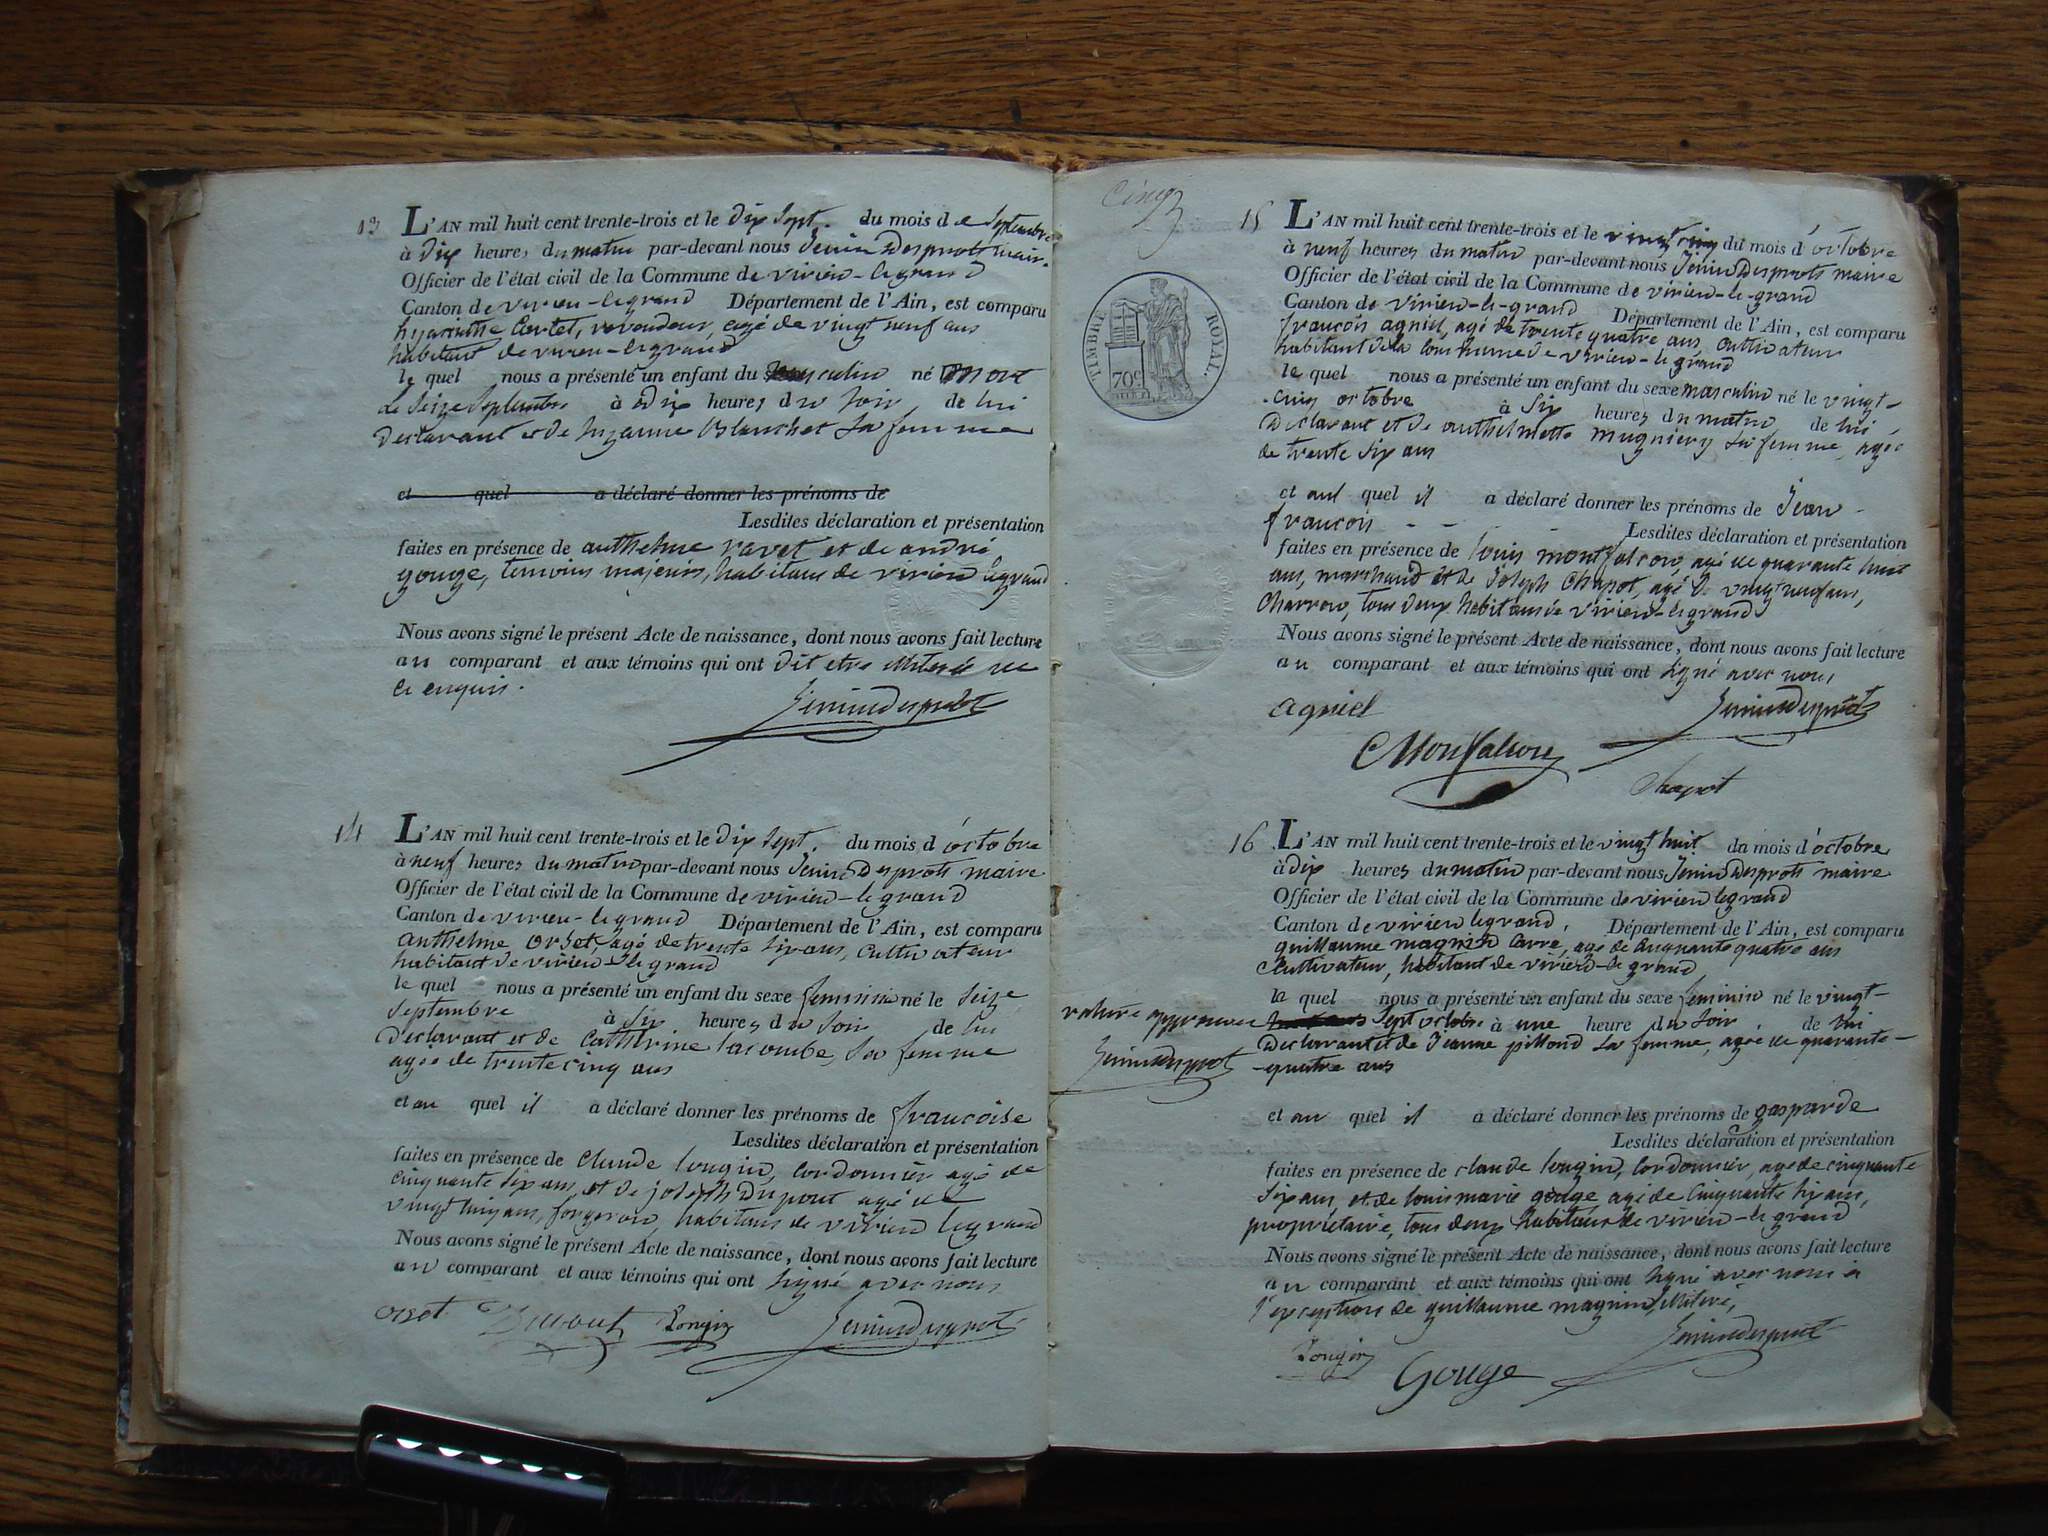 13 L'AN mil huit cent trente-trois et le dix sept. du mois de Septembre
à dix heures du matin par-devant nous Jenin Desprots maire
Officier de l'état civil de la Commune de virieu-legrand
Canton de virieu-legrand Département de l'Ain, est comparu
hyacinthe Cartet, revendeur, agé de vingt neuf ans
habitant de virieu-legrand
le quel nous a présenté un enfant du masculin né mort
le Seize Septembre à Dix heures du soir, de lui
déclarant et de Suzanne Blanchet sa femme
et quel a déclaré donner les prénoms de
Lesdites déclaration et présentation
faites en présence de anthelme ravet et de andré
gouge, temoins majeurs, habitans de virieu legrand
Nous avons signé le présent Acte de naissance, dont nous avons fait lecture
au comparant et aux témoins qui ont dit etre illiterés de
ce enquis.
Jenin Desprots
14 L'AN mil huit cent trente-trois et le dix sept. du mois d'octobre
à neuf heures du matin par-devant nous Jenin Desprots maire
Officier de l'état civil de la Commune de virieu-legrand
Canton de virieu-legrand Département de l'Ain, est comparu
anthelme orset, agé de trente six ans, cultivateur
habitant de virieu-legrand
le quel nous a présenté un enfant du sexe feminin né le Seize
septembre à six heures du soir de lui
declarant et de Catherine lacombe, sa femme
agée de trente cinq ans
et au quel il a déclaré donner les prénoms de françoise
Lesdites déclaration et présentation
faites en présence de Claude longin, cordonnier agé de
cinquante six ans, et de joseph Dupont agé de
vingt cinq ans, forgeron, habitans de virieu legrand
Nous avons signé le présent Acte de naissance, dont nous avons fait lecture
au comparant et aux témoins qui ont signé avec nous
orset Dupont Longin Jenin Desprots
Cinq
TIMBRE ROYAL.
70c
15 L'AN mil huit cent trente-trois et le vingt cinq du mois d'octobre
à neuf heures du matin par-devant nous Jenin Desprots maire
Officier de l'état civil de la Commune de virieu-le-grand
Canton de virieu-le-grand Département de l'Ain, est comparu
françois agniel, agé de trente quatre ans, cultivateur
habitant de la commune de virieu-legrand
le quel nous a présenté un enfant du sexe masculin né le vingt-
-cinq octobre à six heures du matin, de lui
declarant et de anthelmette mugniery sa femme, agée
de trente six ans
et aul quel il a déclaré donner les prénoms de Jean-
françois - -
Lesdites déclaration et présentation
faites en présence de louis montfalcon, agé de quarante huit
ans, marchand et de Joseph Chapot, agé de vingt neuf ans,
Charron, tous deux habitans de virieu-legrand
Nous avons signé le présent Acte de naissance, dont nous avons fait lecture
au comparant et aux témoins qui ont signé avec nous,
agniel Jenin Desprots
Monfalcon
Chapot
16 L'AN mil huit cent trente-trois et le vingt huit du mois d'octobre
à dix heures du matin par-devant nous Jenin Desprots maire
Officier de l'état civil de la Commune de virieu legrand
Canton de virieu legrand. Département de l'Ain, est comparu
guillaume magnin carré, agé de cinquante quatre ans
Cultivateur, habitant de virieu-le grand
le quel nous a présenté un enfant du sexe feminin né le vingt-
sept octobre à une heure du soir, de lui
declarant et de Jeanne pillond sa femme, agée de quarante-
-quatre ans
rature approuvée
Jenin Desprots
et au quel il a déclaré donner les prénoms de gasparde
Lesdites déclaration et présentation
faites en présence de claude longin, cordonnier, agé de cinquante
six ans, et de louis marie gouge agé de cinquante six ans,
propriétaire, tous deux habitans de virieu-le grand
Nous avons signé le présent Acte de naissance, dont nous avons fait lecture
au comparant et aux témoins qui ont signé avec nous à
l'exception de guillaume magnin, illiteré,
Longin Gouge Jenin Desprots